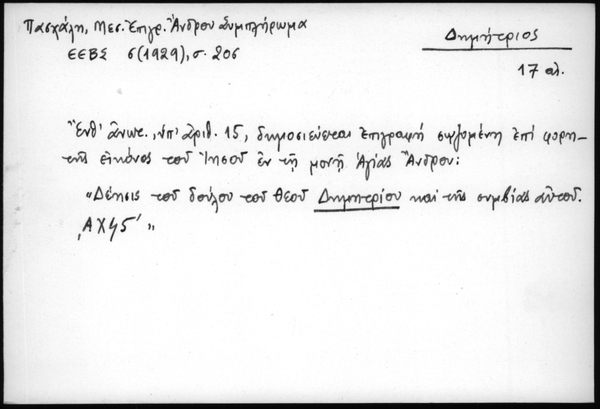 Πασχάλη, Μεσ. Ἐπιγρ. Ἄνδρου Συμπλήρωμα
ΕΕΒΣ 6(1929), σ. 206
Δημήτριος
17 αἰ.
Ἔνθ' ἄνωτ., ὑπ' ἀριθ. 15, δημοσιεύεται ἐπιγραφή σωζομένη ἐπί φορη-
τῆς εἰκόνος τοῦ Ἰησοῦ ἐν τῇ μονῇ Ἁγίας Ἄνδρου:
"Δέησις τοῦ δούλου τοῦ θεοῦ Δημητρίου καί τῆς συμβίας αὐτοῦ.
‚ΑΧϞ5'"